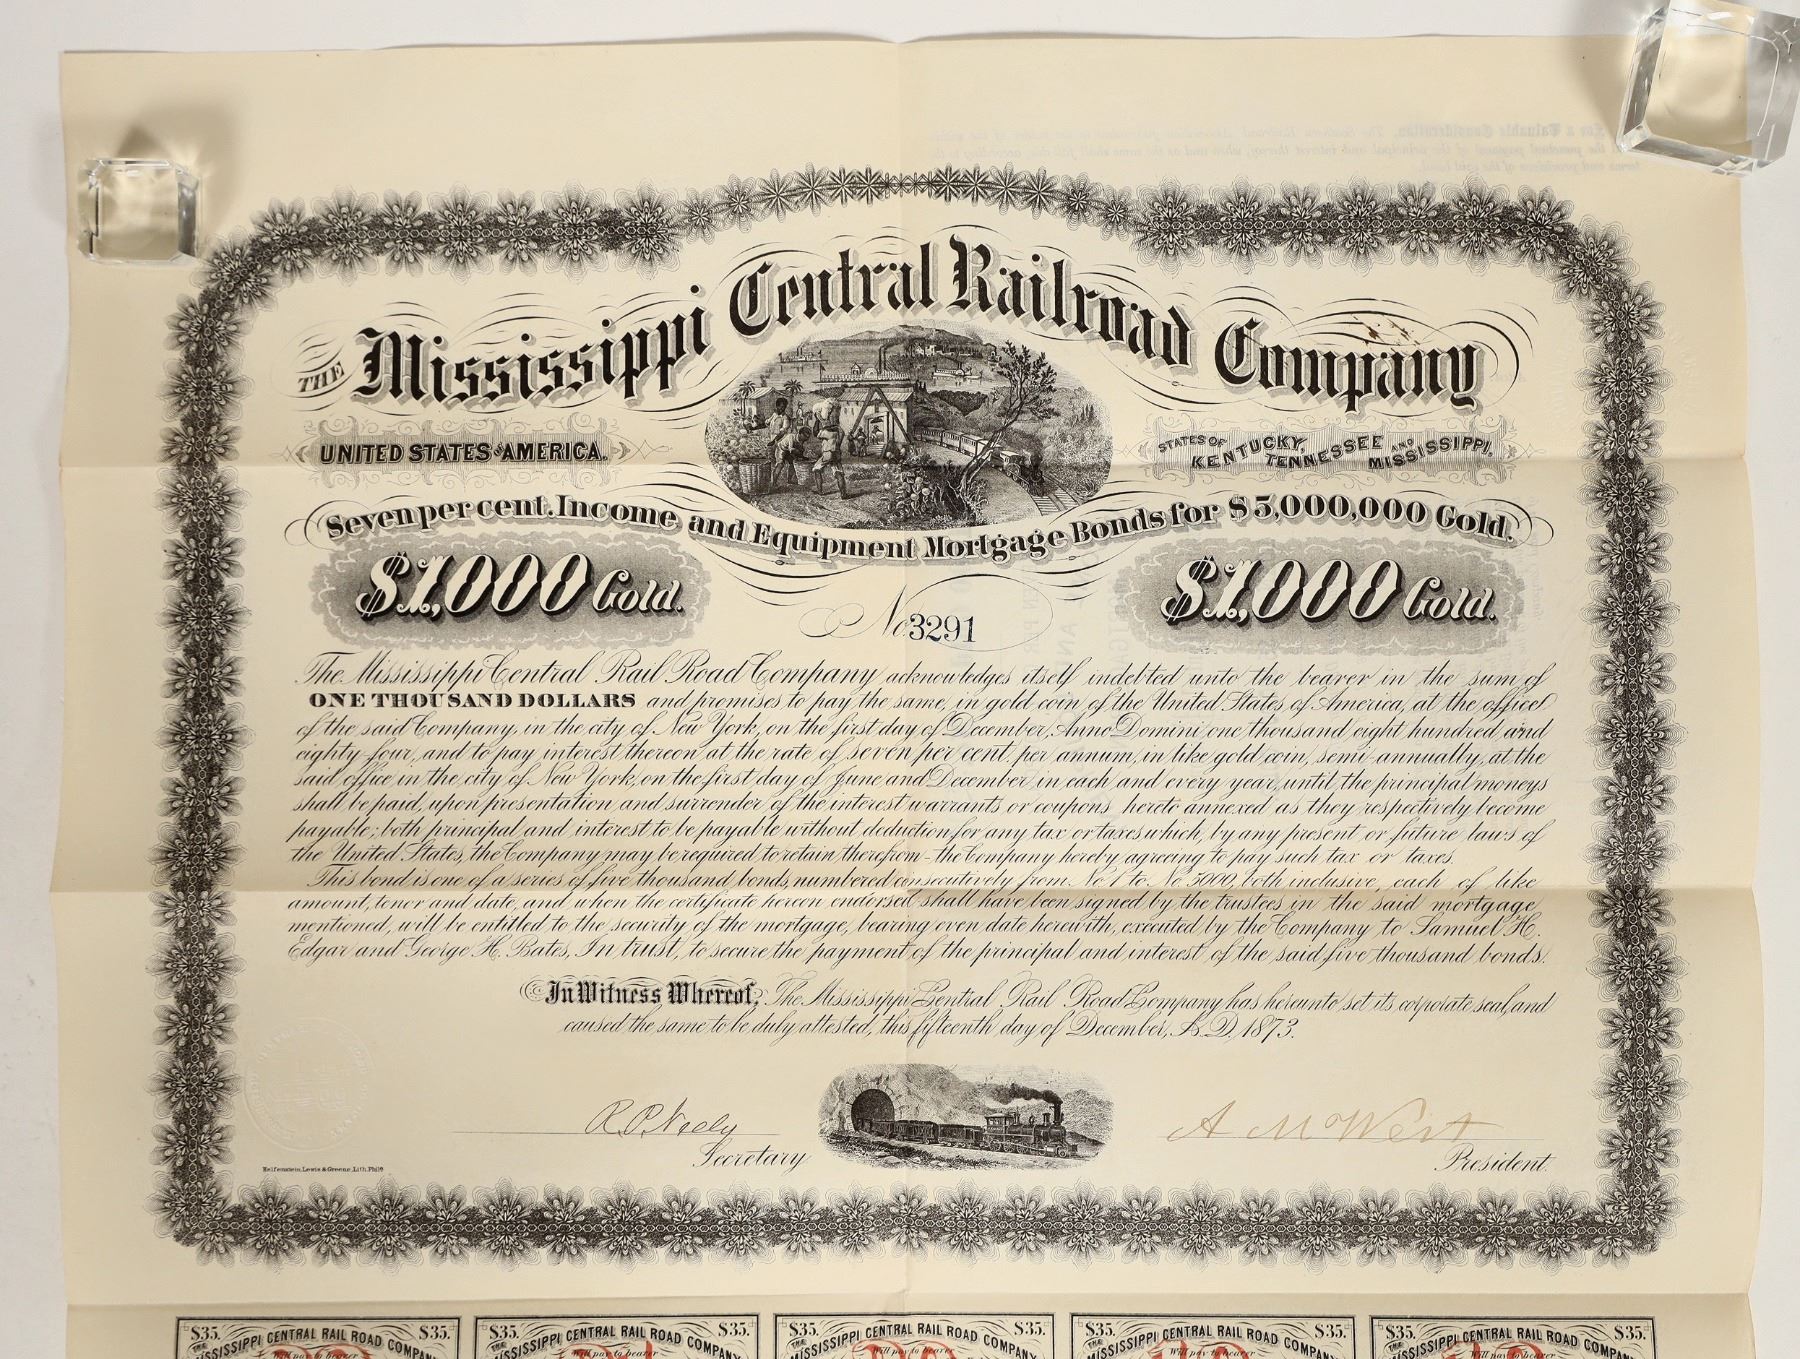 THE Mississippi Central Railroad Company
UNITED STATES OF AMERICA.
STATES OF KENTUCKY, TENNESSEE AND MISSISSIPPI.
Seven per cent. Income and Equipment Mortgage Bonds for $5,000,000 Gold.
$1,000 Gold.
$1,000 Gold.
No 3291
The Mississippi Central Rail Road Company acknowledges itself indebted unto the bearer in the sum of
ONE THOUSAND DOLLARS and promises to pay the same, in gold coin of the United States of America, at the office
of the said Company, in the city of New York, on the first day of December, Anno Domini one thousand eight hundred and
eighty-four, and to pay interest thereon at the rate of seven per cent. per annum, in like gold coin, semi-annually, at the
said office in the city of New York, on the first day of June and December, in each and every year, until the principal moneys
shall be paid, upon presentation and surrender of the interest warrants or coupons hereto annexed as they respectively become
payable; both principal and interest to be payable without deduction for any tax or taxes which, by any present or future laws of
the United States, the Company may be required to retain therefrom - the Company hereby agreeing to pay such tax or taxes.
This bond is one of a series of five thousand bonds, numbered consecutively from No. 1 to No. 5000, both inclusive, each of like
amount, tenor and date, and when the certificate hereon endorsed shall have been signed by the trustees in the said mortgage
mentioned, will be entitled to the security of the mortgage, bearing even date herewith, executed by the Company to Samuel H.
Edgar and George H. Bates, In trust, to secure the payment of the principal and interest of the said five thousand bonds.
In Witness Whereof, The Mississippi Central Rail Road Company has hereunto set its corporate seal, and
caused the same to be duly attested, this fifteenth day of December, A.D. 1873.
R. P. Neely
Secretary
A M West
President.
Reifenstein, Lewis & Greene, Lith. Phila
$35. $35.
THE MISSISSIPPI CENTRAL RAIL ROAD COMPANY
Will pay to bearer
$35. $35.
THE MISSISSIPPI CENTRAL RAIL ROAD COMPANY
Will pay to bearer
$35. $35.
THE MISSISSIPPI CENTRAL RAIL ROAD COMPANY
Will pay to bearer
$35. $35.
THE MISSISSIPPI CENTRAL RAIL ROAD COMPANY
Will pay to bearer
$35. $35.
THE MISSISSIPPI CENTRAL RAIL ROAD COMPANY
Will pay to bearer